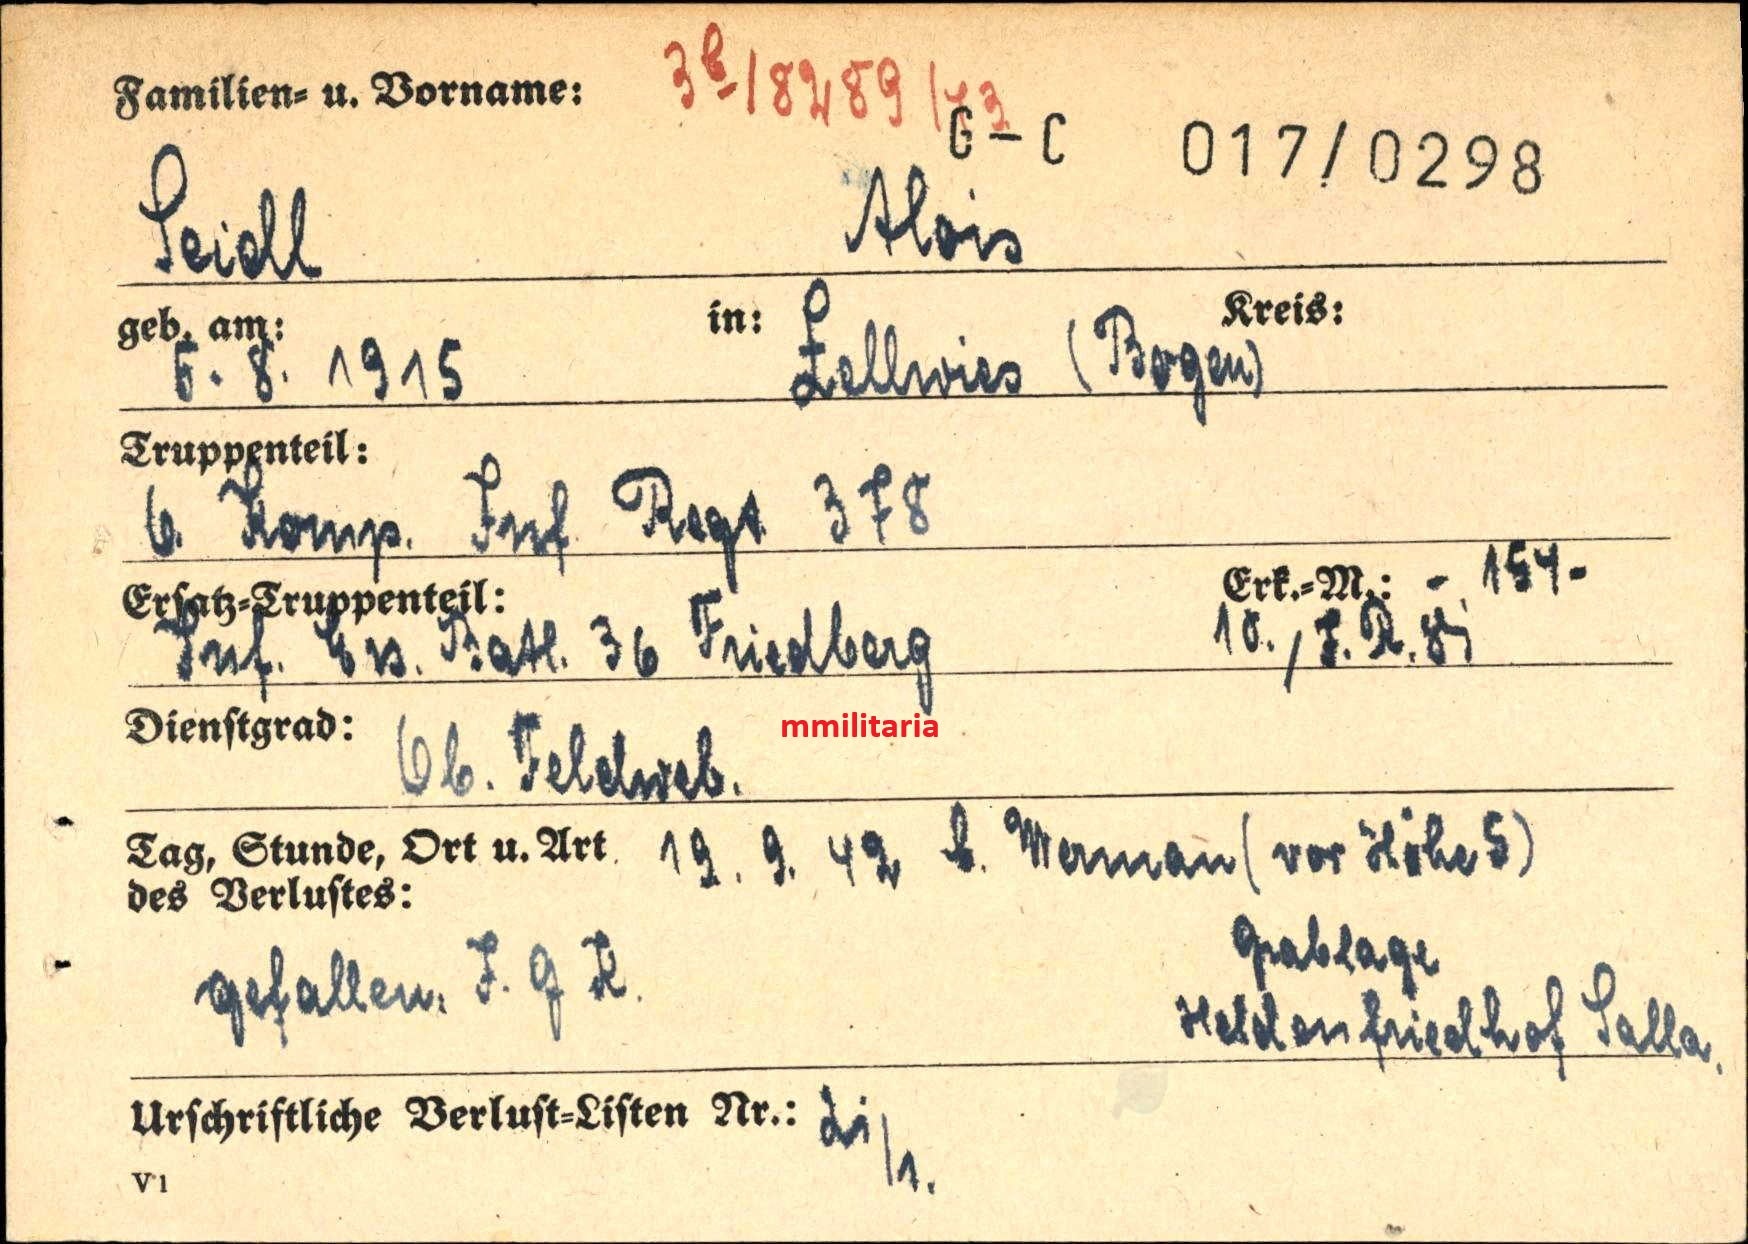 Familien- u. Vorname: 3b/8289/73
G-C 017/0298
Seidl Alois
geb. am: in: Kreis:
5. 8. 1915 Zellwies (Bogen)
Truppenteil:
6. Komp. Inf. Regt. 378
Ersatz-Truppenteil: Erk.-M.: - 154 -
Inf. Ers. Batl. 36 Friedberg 10., J. R.
Dienstgrad: Ob. Feldweb.
mmilitaria
Tag, Stunde, Ort u. Art 19. 9. 42 b. (vor Höhe 5)
des Verlustes:
gefallen.
Grablage
Heldenfriedhof Salla.
Urschriftliche Verlust-Listen Nr.: /1.
V1